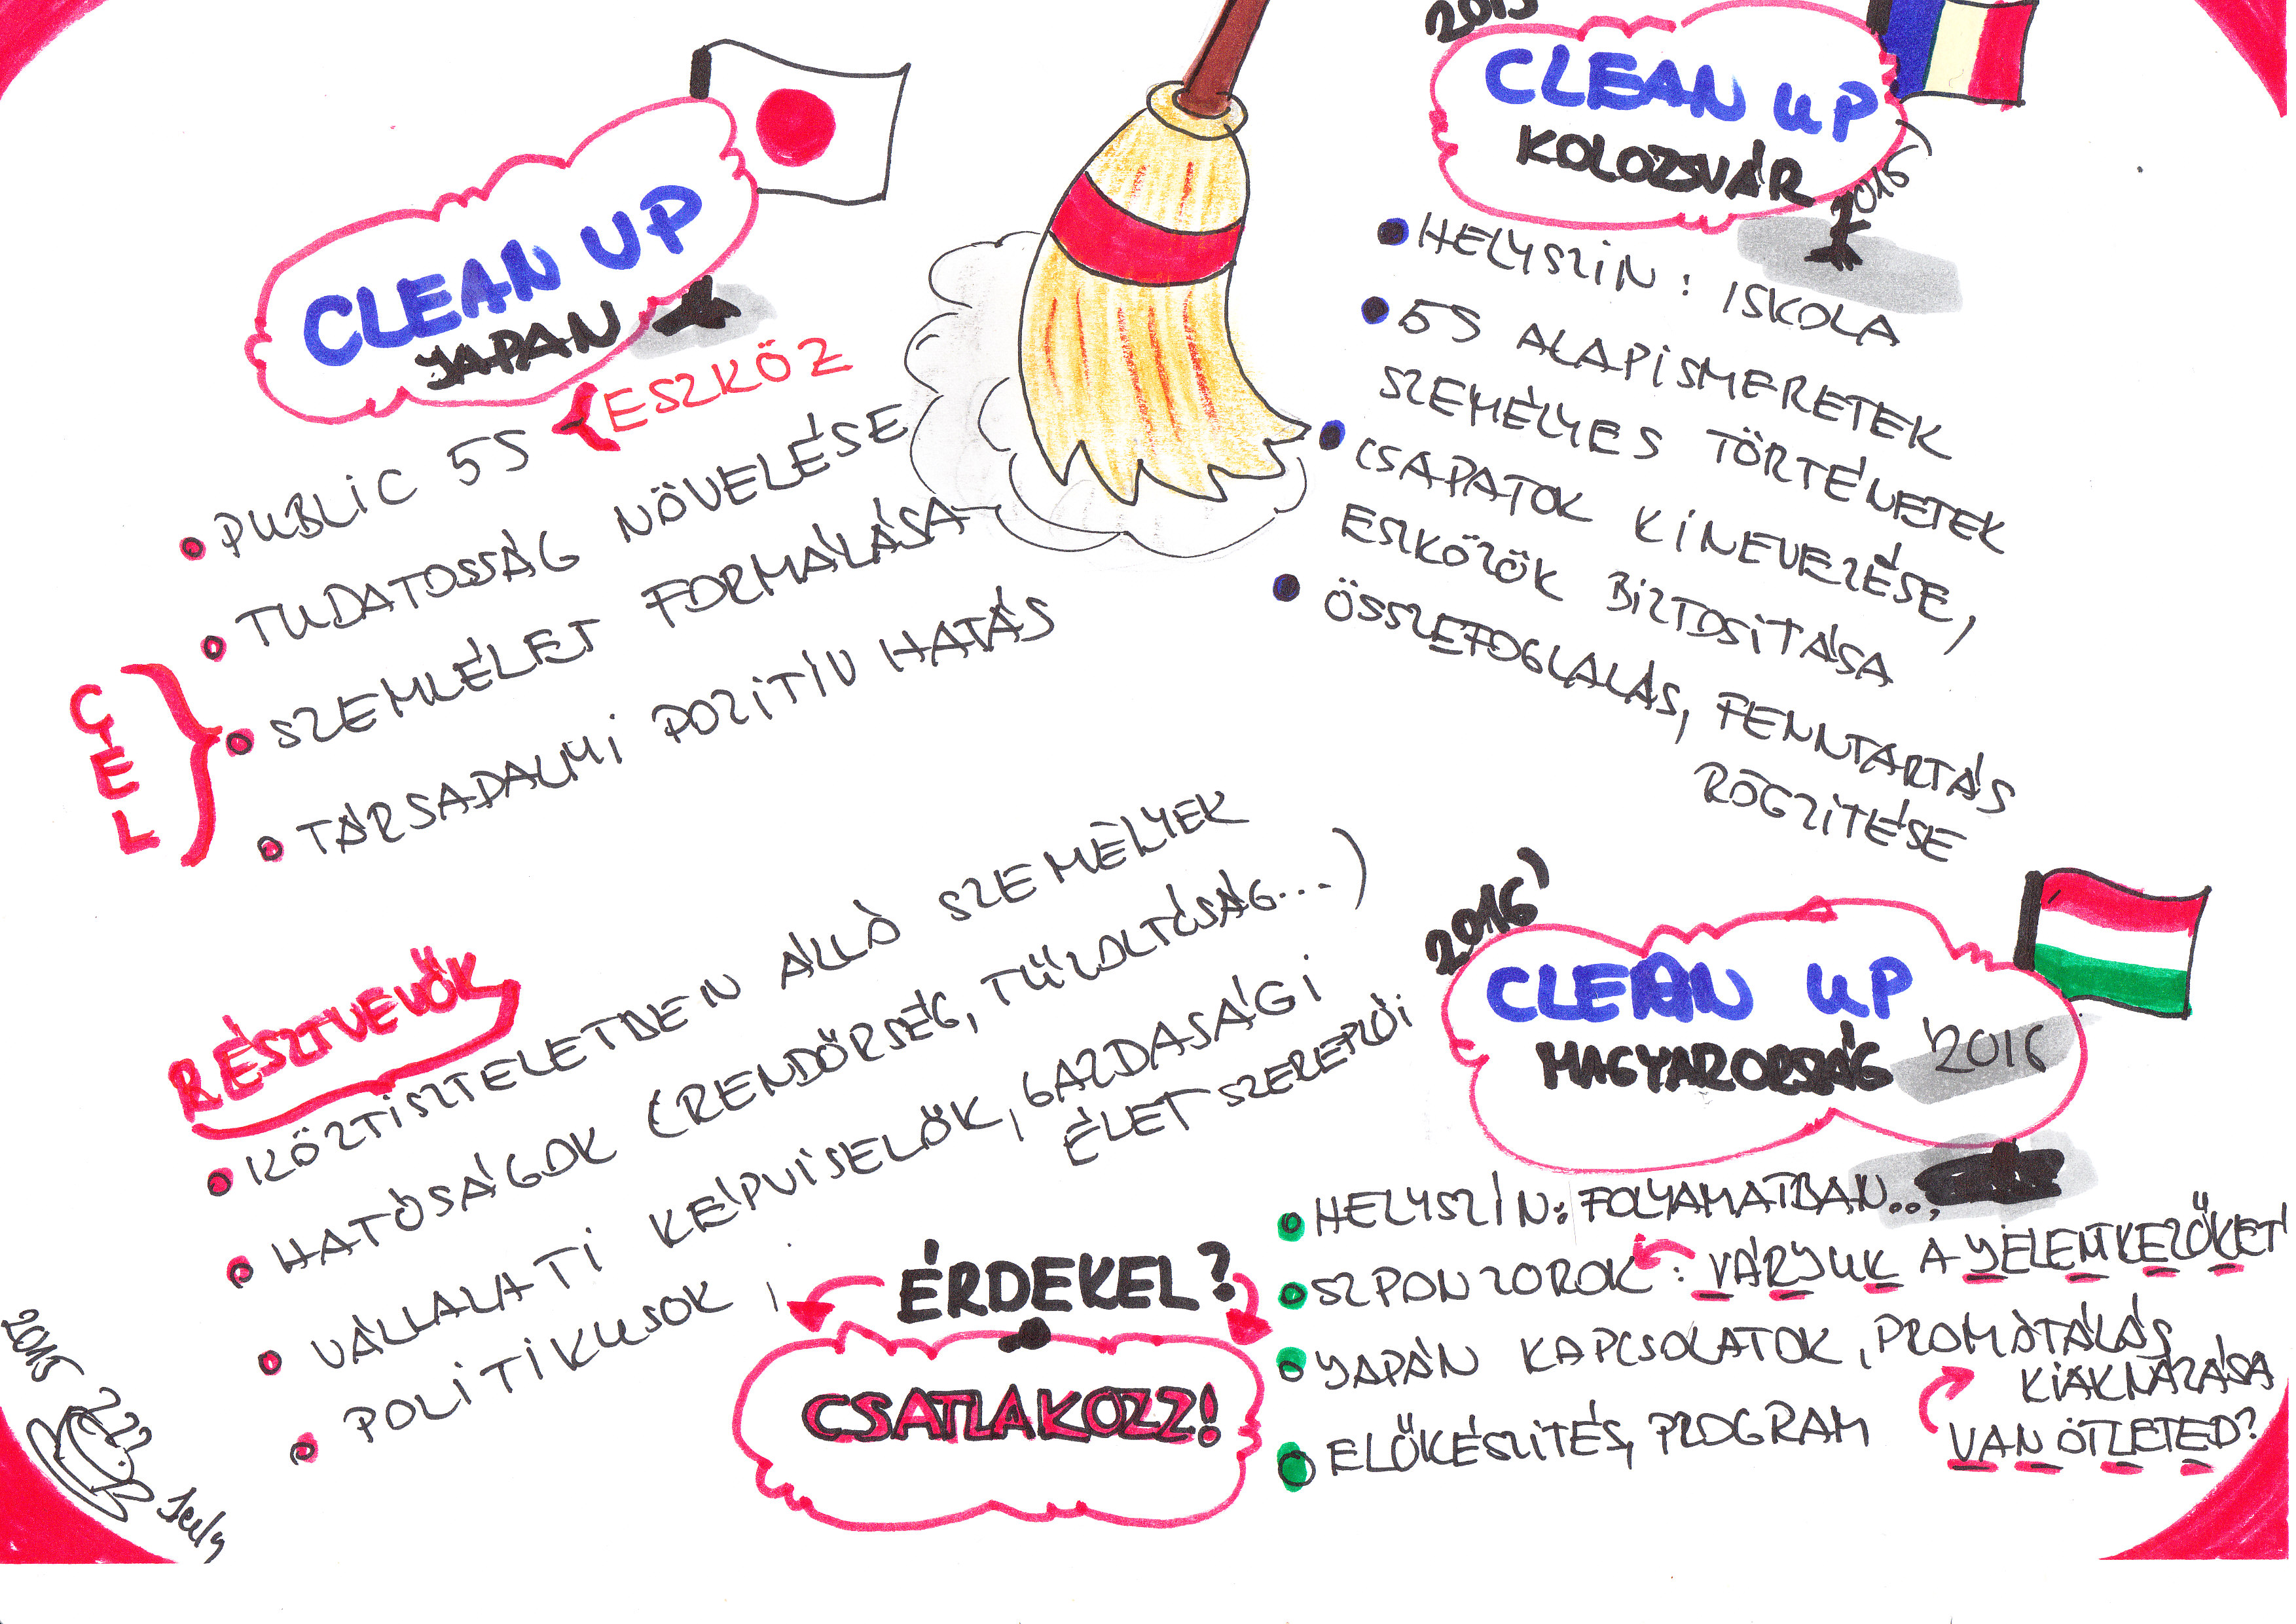 CLEAN UP
JAPAN
ESZKÖZ
PUBLIC 5S
TUDATOSSÁG NÖVELÉSE
SZEMLÉLET FORMÁLÁSA
TÁRSADALMI POZITÍV HATÁS
CÉL
RÉSZTVEVŐK
KÖZTISZTELETBEN ÁLLÓ SZEMÉLYEK
HATÓSÁGOK (RENDŐRSÉG, TŰZOLTÓSÁG...)
VÁLLALATI KÉPVISELŐK, GAZDASÁGI
ÉLET SZEREPLŐI
POLITIKUSOK
2015
ÉRDEKEL?
CSATLAKOZZ!
2015
CLEAN UP
KOLOZSVÁR
2016
HELYSZÍN: ISKOLA
5S ALAPISMERETEK
SZEMÉLYES TÖRTÉNETEK
CSAPATOK KINEVEZÉSE,
ESZKÖZÖK BIZTOSÍTÁSA
ÖSSZEFOGLALÁS, FENNTARTÁS
RÖGZÍTÉSE
2016'
CLEAN UP
MAGYARORSZÁG '2016
HELYSZÍN: FOLYAMATBAN...
SZPONZOROK: VÁRJUK A JELENTKEZŐKET!
JAPÁN KAPCSOLATOK, PROMÓTÁLÁS
KIAKNÁZÁSA
ELŐKÉSZÍTÉS, PROGRAM
VAN ÖTLETED?